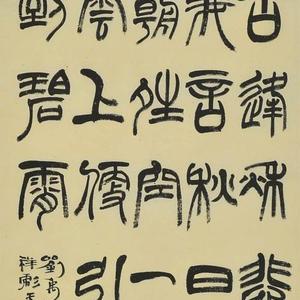 古逢秋悲
我言秋日
朝晴空一
雲上便引
到碧霄
劉禹